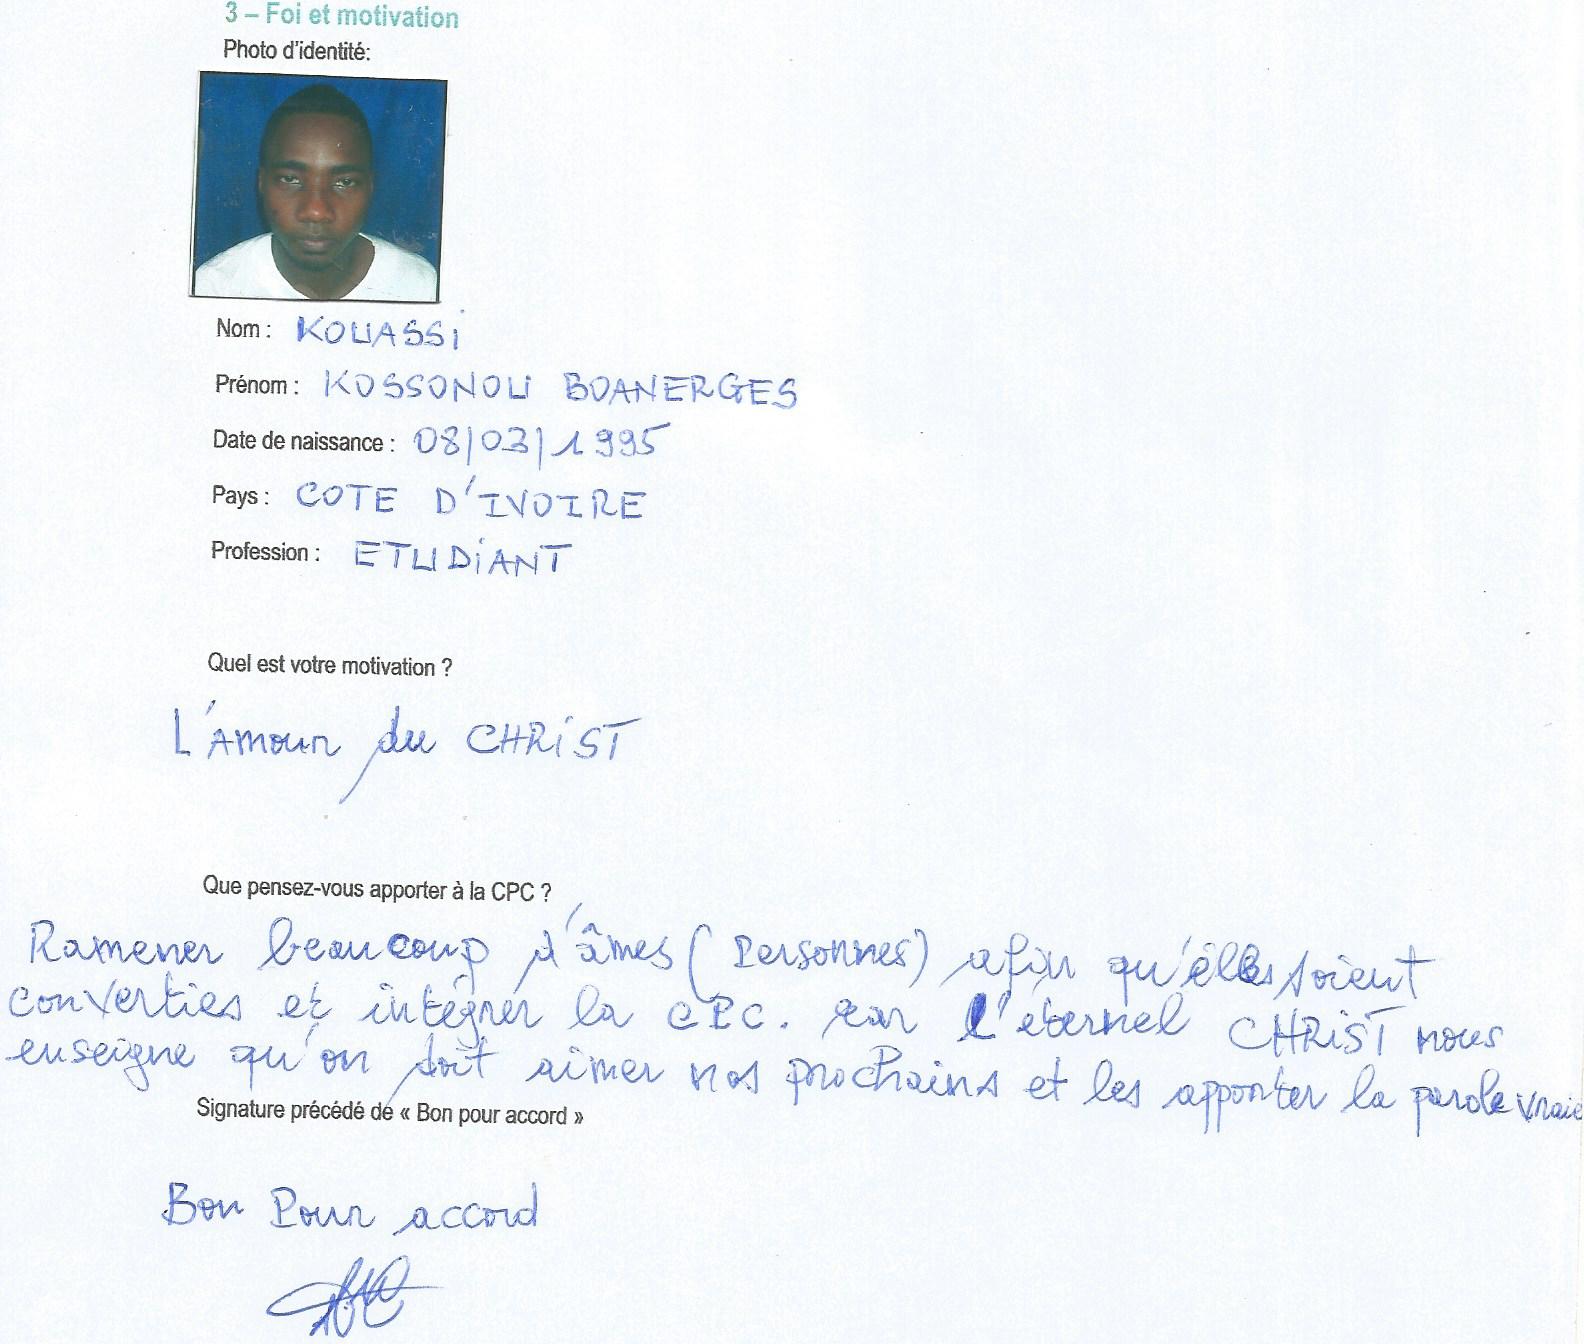 3 – Foi et motivation
Photo d'identité:
Nom : KOUASSi
Prénom : KOSSONOU BOANERGES
Date de naissance : 08/03/1995
Pays : COTE D'IVOIRE
Profession : ETUDiANT
Quel est votre motivation ?
L'Amour du CHRiST
Que pensez-vous apporter à la CPC ?
Ramener beaucoup d'âmes (Personnes) afin qu'elles soient
converties et intégrer la CPC. Car l'éternel CHRiST nous
enseigne qu'on doit aimer nos prochains et les apporter la parole vraie
Signature précédé de « Bon pour accord »
Bon Pour accord